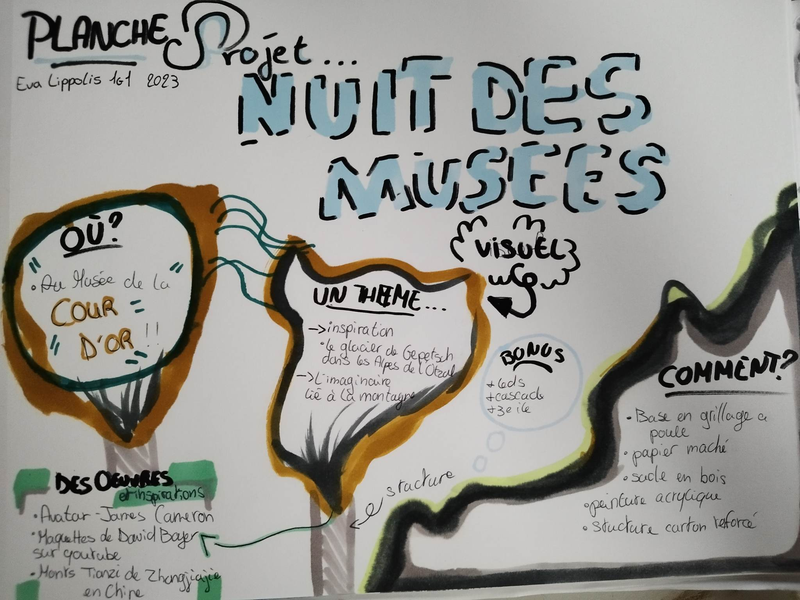 PLANCHE Projet...
Eva Lippolis 1G1 2023
NUIT DES
MUSEES
OÙ?
• Au Musée de la
" COUR
D'OR " !!
UN THEME...
→ inspiration
• le glacier de Gepetsch
dans les Alpes de l'Otzal
→ L'imaginaire
lié à la montagne
VISUEL
BONUS
+ leds
+ cascade
+ 3e île
COMMENT?
• Base en grillage a
poule
• papier maché
• socle en bois
• peinture acrylique
• structure carton reforcé
structure
DES OEUVRES
et inspirations
• Avatar - James Cameron
• Maquettes de David Boyer
sur youtube
• Monts Tianzi de Zhangjiajie
en Chine